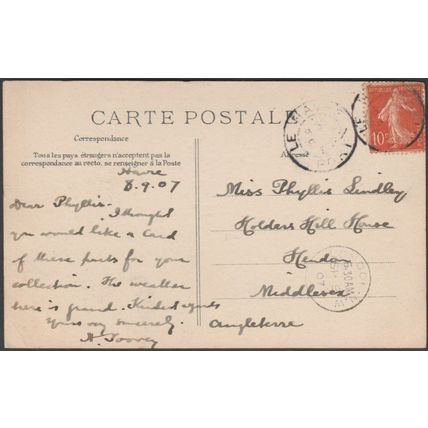 CARTE POSTALE
Correspondance
Tous les pays étrangers n'acceptent pas la
correspondance au recto, se renseigner à la Poste
Havre
8.9.07
Dear Phyllis.
I thought
you would like a card
of these parts for your
collection. The weather
here is grand. Kindest regards
Yours very sincerely.
A. Toovey
Miss Phyllis Lindley
Holders Hill House
Hendon
Middlesex
Angleterre
LE HAVRE
10c